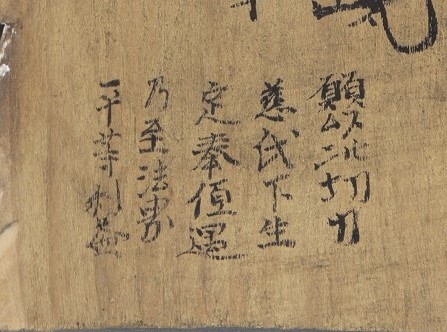 願以此功力
慈氏下生
定奉值遇
乃至法界
平等利益